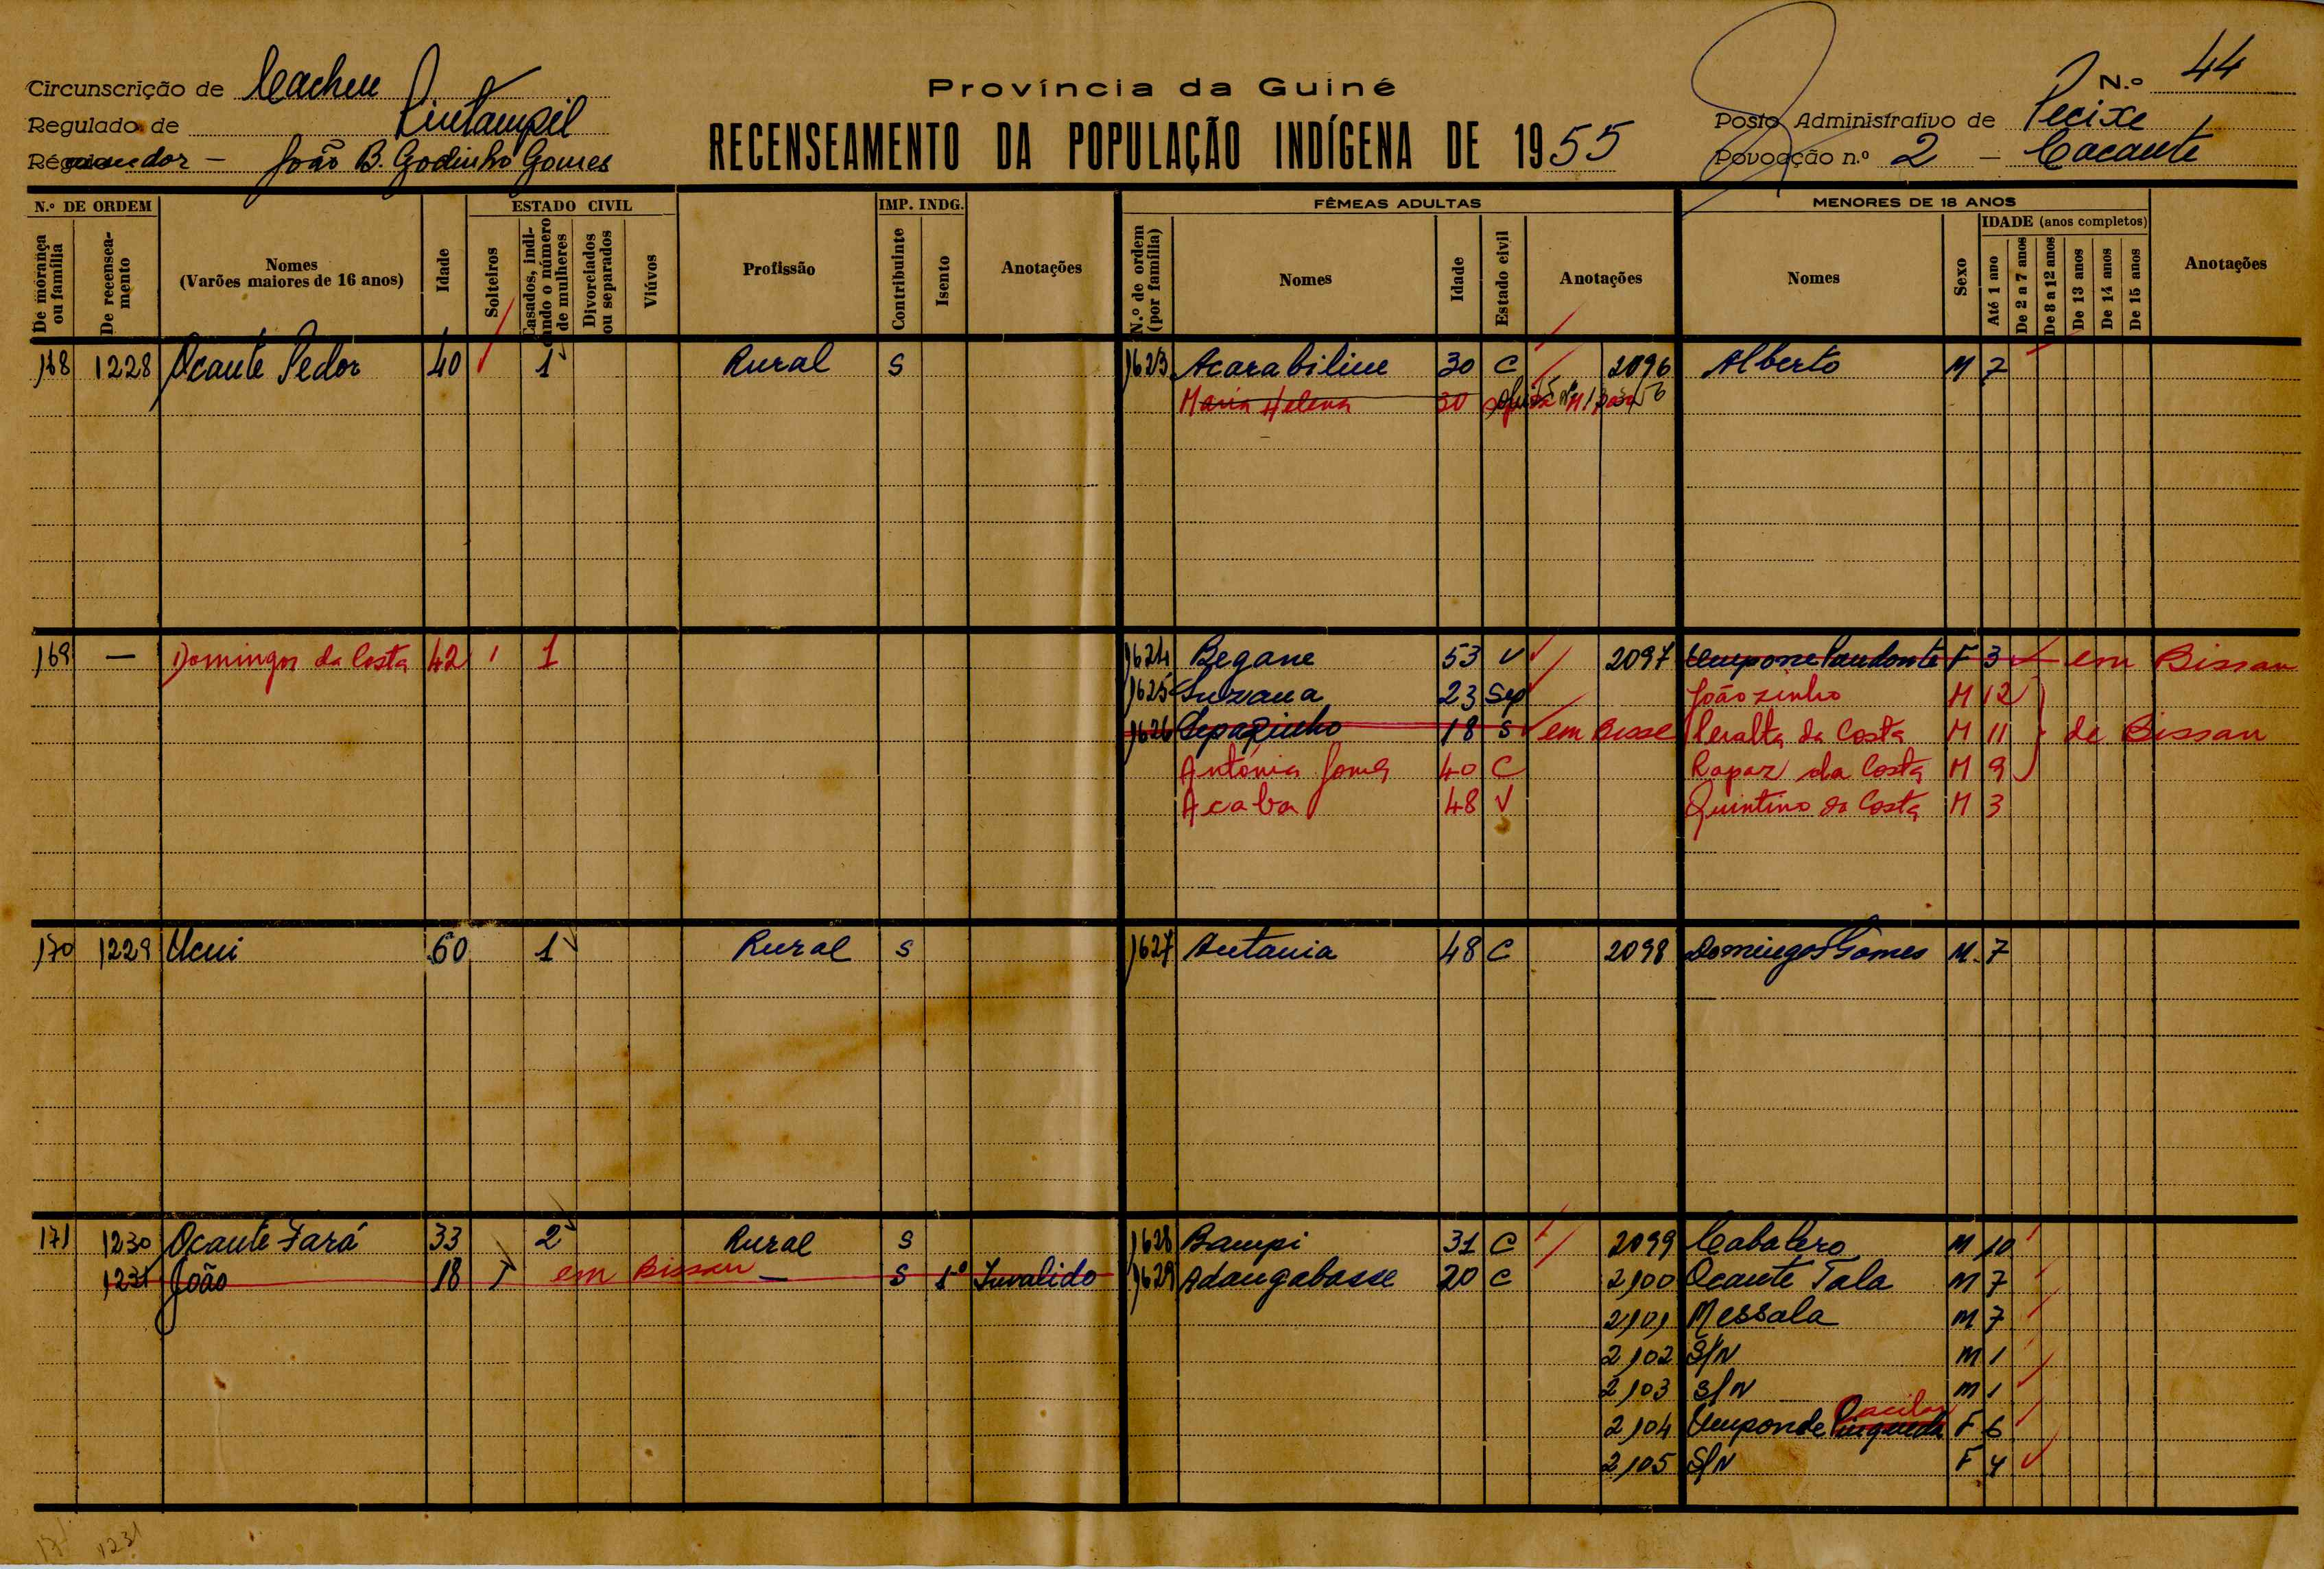 Circunscrição de Cacheu
Província da Guiné
N.º 44
Regulado de Pintampil
Posto Administrativo de Pecixe
João B. Godinho Gomes
RECENSEAMENTO DA POPULAÇÃO INDÍGENA DE 1955
Povoação n.º 2 — Cacante
N.º DE ORDEM
De morança ou família
De recenseamento
Nomes
(Varões maiores de 16 anos)
Idade
ESTADO CIVIL
Solteiros
Casados, indicando o número de mulheres
Divorciados ou separados
Viúvos
Profissão
IMP. INDG.
Contribuinte
Isento
Anotações
FÊMEAS ADULTAS
N.º de ordem (por família)
Nomes
Idade
Estado civil
Anotações
MENORES DE 18 ANOS
Nomes
Sexo
IDADE (anos completos)
Até 1 ano
De 2 a 7 anos
De 8 a 12 anos
De 13 anos
De 14 anos
De 15 anos
Anotações
168 1228 Ocante Pedor 40 1 Rural S 1623 Acarabiline 30 C 2096 Alberto M 7
Maria Helena 30
169 — Domingos da Costa 42 1 1624 Begane 53 V 2097 F 3 em Bissau
1625 Suzana 23 Sep Joãozinho M 12
1626 18 S em Bissau Peralta da Costa M 11 de Bissau
Antónia Gomes 40 C Rapaz da Costa M 9
Acaba 48 V Quintino da Costa M 3
170 1229 Ucui 60 1 Rural S 1627 Antania 48 C 2098 Domingos Gomes M 7
171 1230 Ocante Fará 33 2 Rural S 1628 Bampi 31 C 2099 Cabatero M 10
1231 João 18 em Bissau — S 1º Invalido 1629 Adangabasse 20 C 2100 Ocante Tala M 7
2101 Messala M 7
2102 S/N M 1
2103 S/N M 1
2104 Umponde F 6
2105 S/N F 4
171 1231